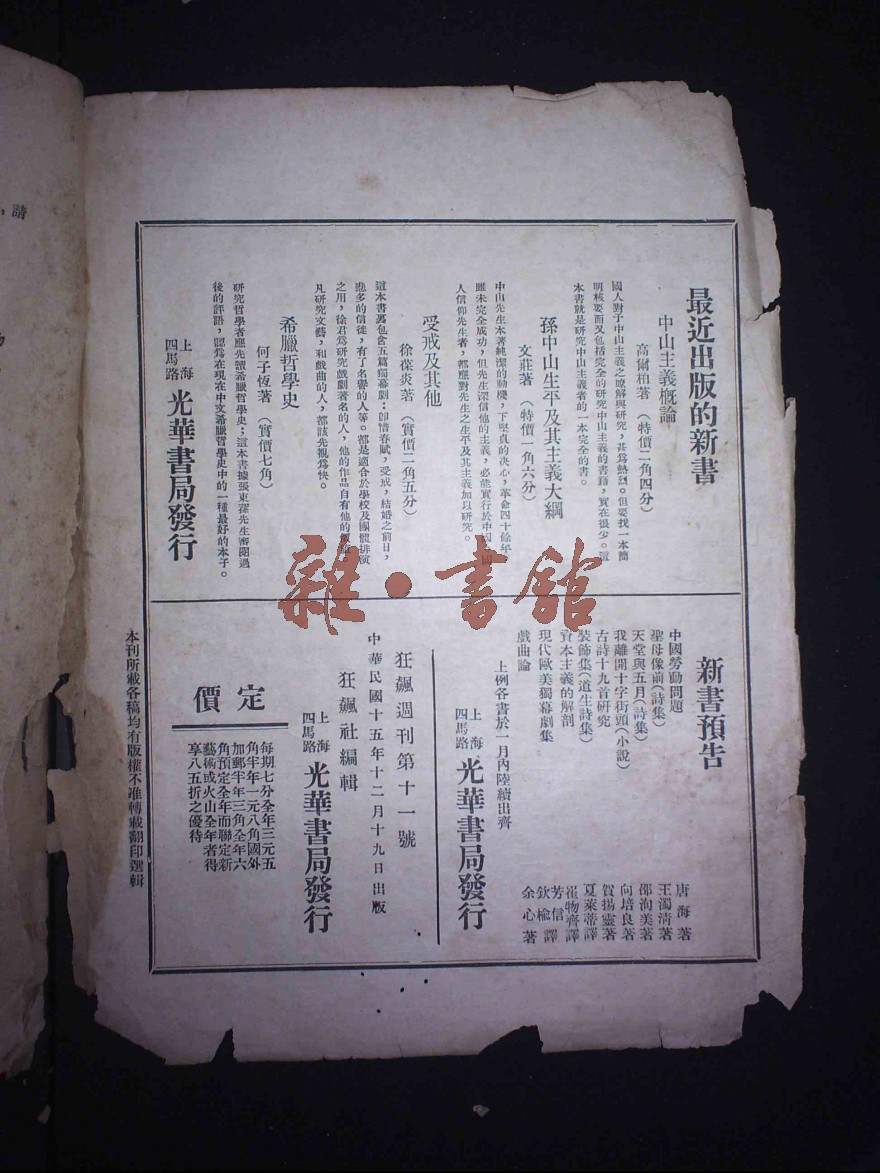 最近出版的新書
中山主義概論
高爾柏著　(特價二角四分)
國人對于中山主義之瞭解與研究，甚為熱烈。但要找一本簡
明核要而又包括完全的研究中山主義的書籍，實在很少。這
本書就是研究中山主義者的一本完全的書。
孫中山生平及其主義大綱
文莊著　(特價一角六分)
中山先生本著純潔的動機，下堅真的決心，革命四十餘年
雖未完全成功，但先生深信他的主義，必能實行於中國
人信仰先生者，都應對先生之生平及其主義加以研究。
受戒及其他
徐葆炎著　(實價二角五分)
這本書裏包含五篇獨幕劇：卽惜春賦，受戒，結婚之前日，
悲多的信徒，有了名譽的人等。都是適合於學校及團體排演
之用，徐君為研究戲劇著名的人，他的作品自有他的
凡研究文藝，和戲曲的人，都該先覩為快。
希臘哲學史
何子恆著　(實價七角)
研究哲學者應先讀希臘哲學史；這本書據張東蓀先生審閱過
後的評語，認為在現在中文希臘哲學史中的一種最好的本子。
上海
四馬路
光華書局發行
新書預告
中國勞動問題　唐海著
聖母像前(詩集)　王濁清著
天堂與五月(詩集)　邵洵美著
我離開十字街頭(小說)　向培良著
古詩十九首研究　賀揚靈著
裝飾集(道生詩集)　夏萊蒂譯
資本主義的解剖　崔物齊譯
現代歐美獨幕劇集　芳信　欽榆譯
戲曲論　余心著
上例各書於一月內陸續出齊
上海
四馬路
光華書局發行
狂飆週刊第十一號
中華民國十五年十二月十九日出版
狂飆社編輯
上海
四馬路
光華書局發行
定價
每期七分全年三元五
角半年一元八角國外
加郵半年三角全年六
角預定全年而聯定新
藝術或火山全年者得
享八五折之優待
本刊所載各稿均有版權不准轉載翻印選輯
，請
雜·書館